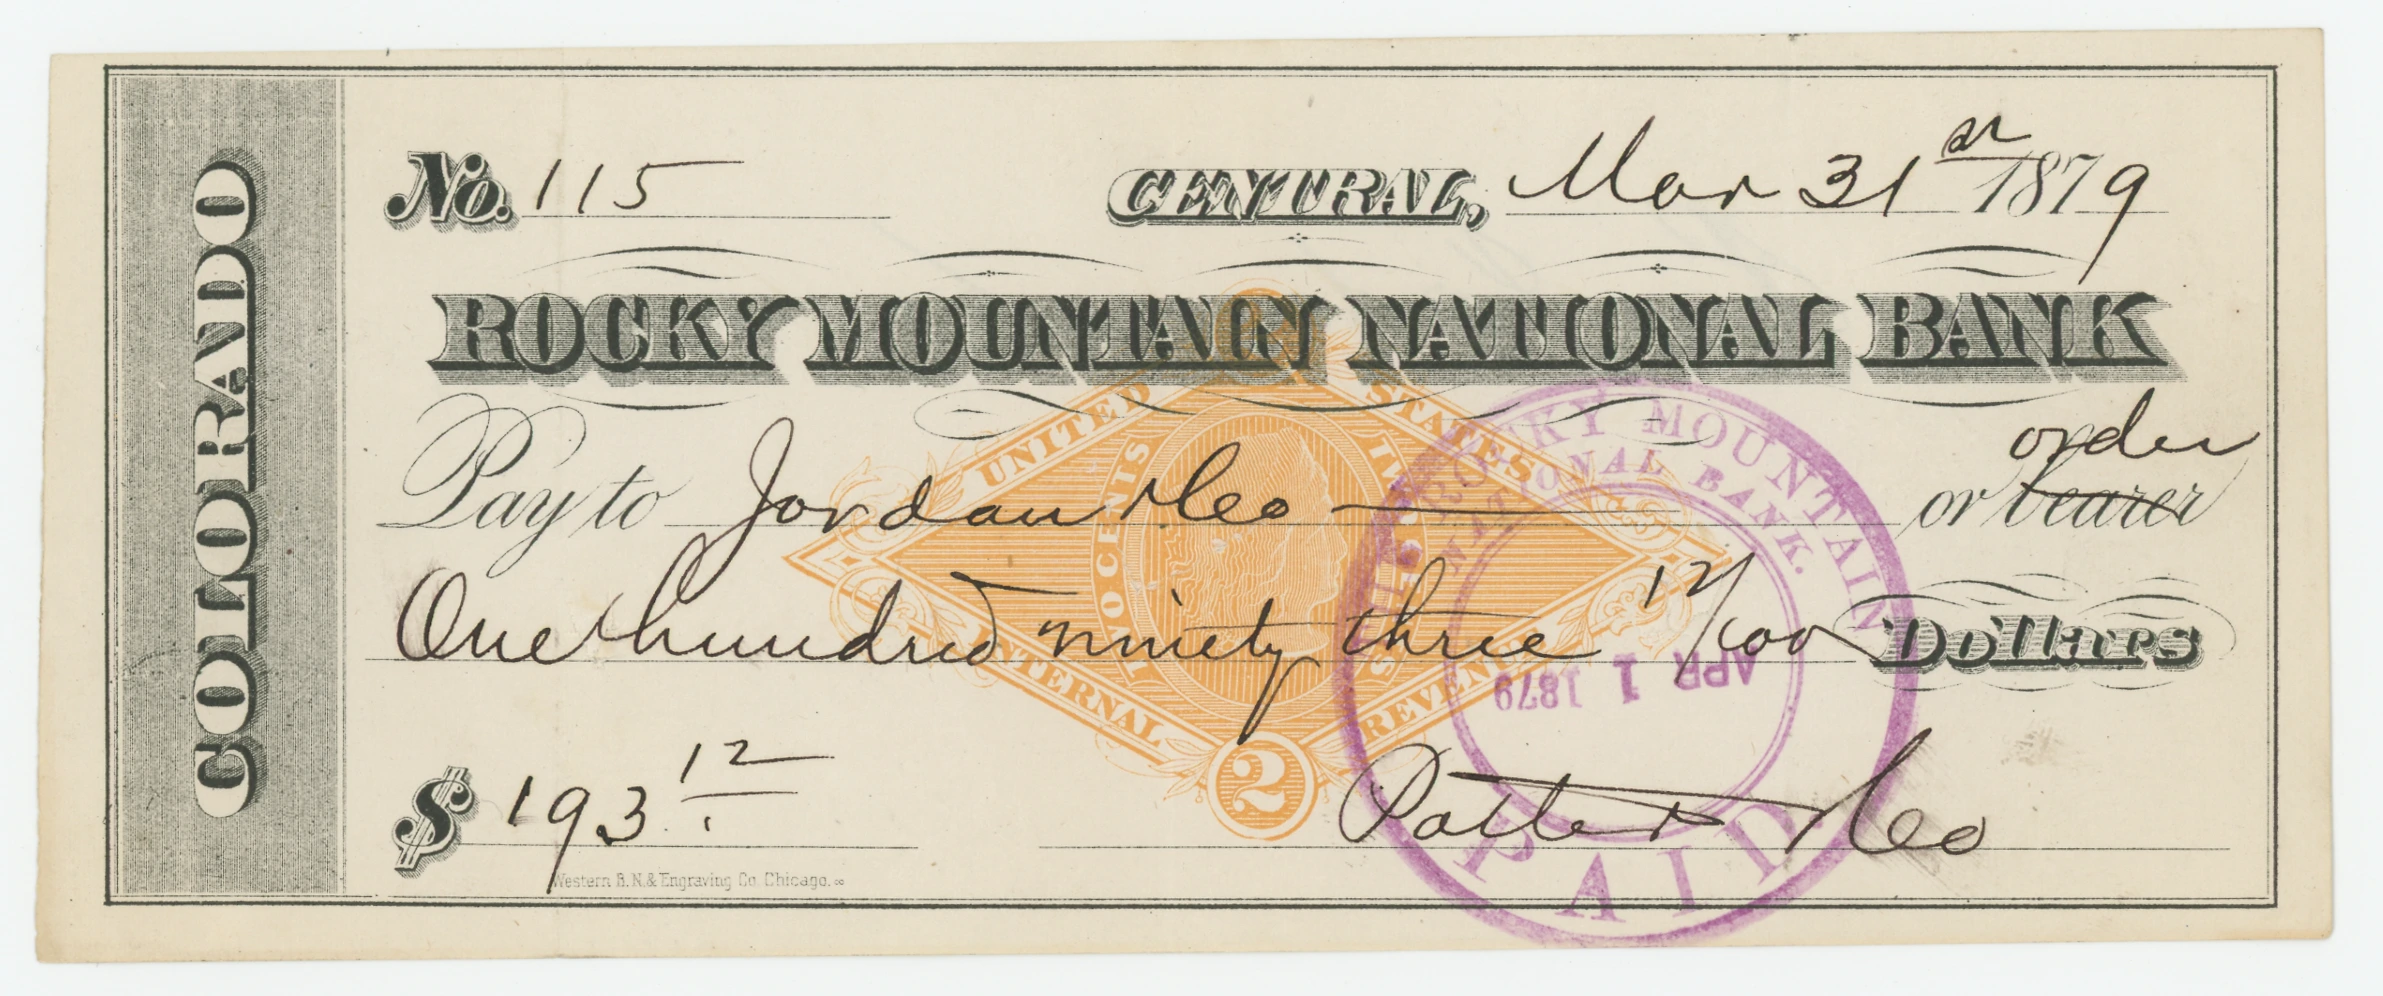 COLORADO
No. 115
CENTRAL, Mar 31st 1879
ROCKY MOUNTAIN NATIONAL BANK
Pay to Jordan &Co or bearer order
One hundred ninety three 12/100 Dollars
$ 193 12
Potter & Co
Western B. N. & Engraving Co. Chicago.
UNITED STATES
TWO CENTS
TWO CENTS
INTERNAL REVENUE
2
THE ROCKY MOUNTAIN
NATIONAL BANK.
APR 1 1879
PAID